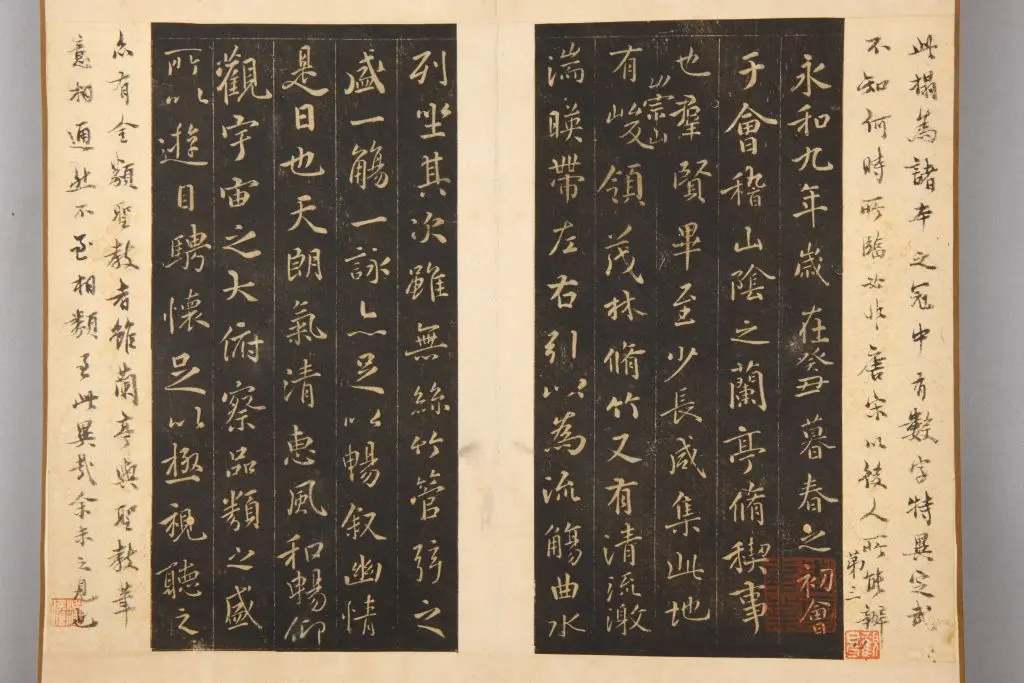 此搨為諸本之冠中有數字特異定武
不知何時所臨必非唐宋以後人所能辦
第三
永和九年歲在癸丑暮春之初會
于會稽山陰之蘭亭脩稧事
也羣賢畢至少長咸集此地
有崇山峻領茂林脩竹又有清流激
湍暎帶左右引以為流觴曲水
列坐其次雖無絲竹管弦之
盛一觴一詠亦足以暢叙幽情
是日也天朗氣清惠風和暢仰
觀宇宙之大俯察品類之盛
所以遊目騁懷足以極視聽之
亦有全類聖教者雖蘭亭與聖教筆
意相通然不至相類至此異哉余未之見也